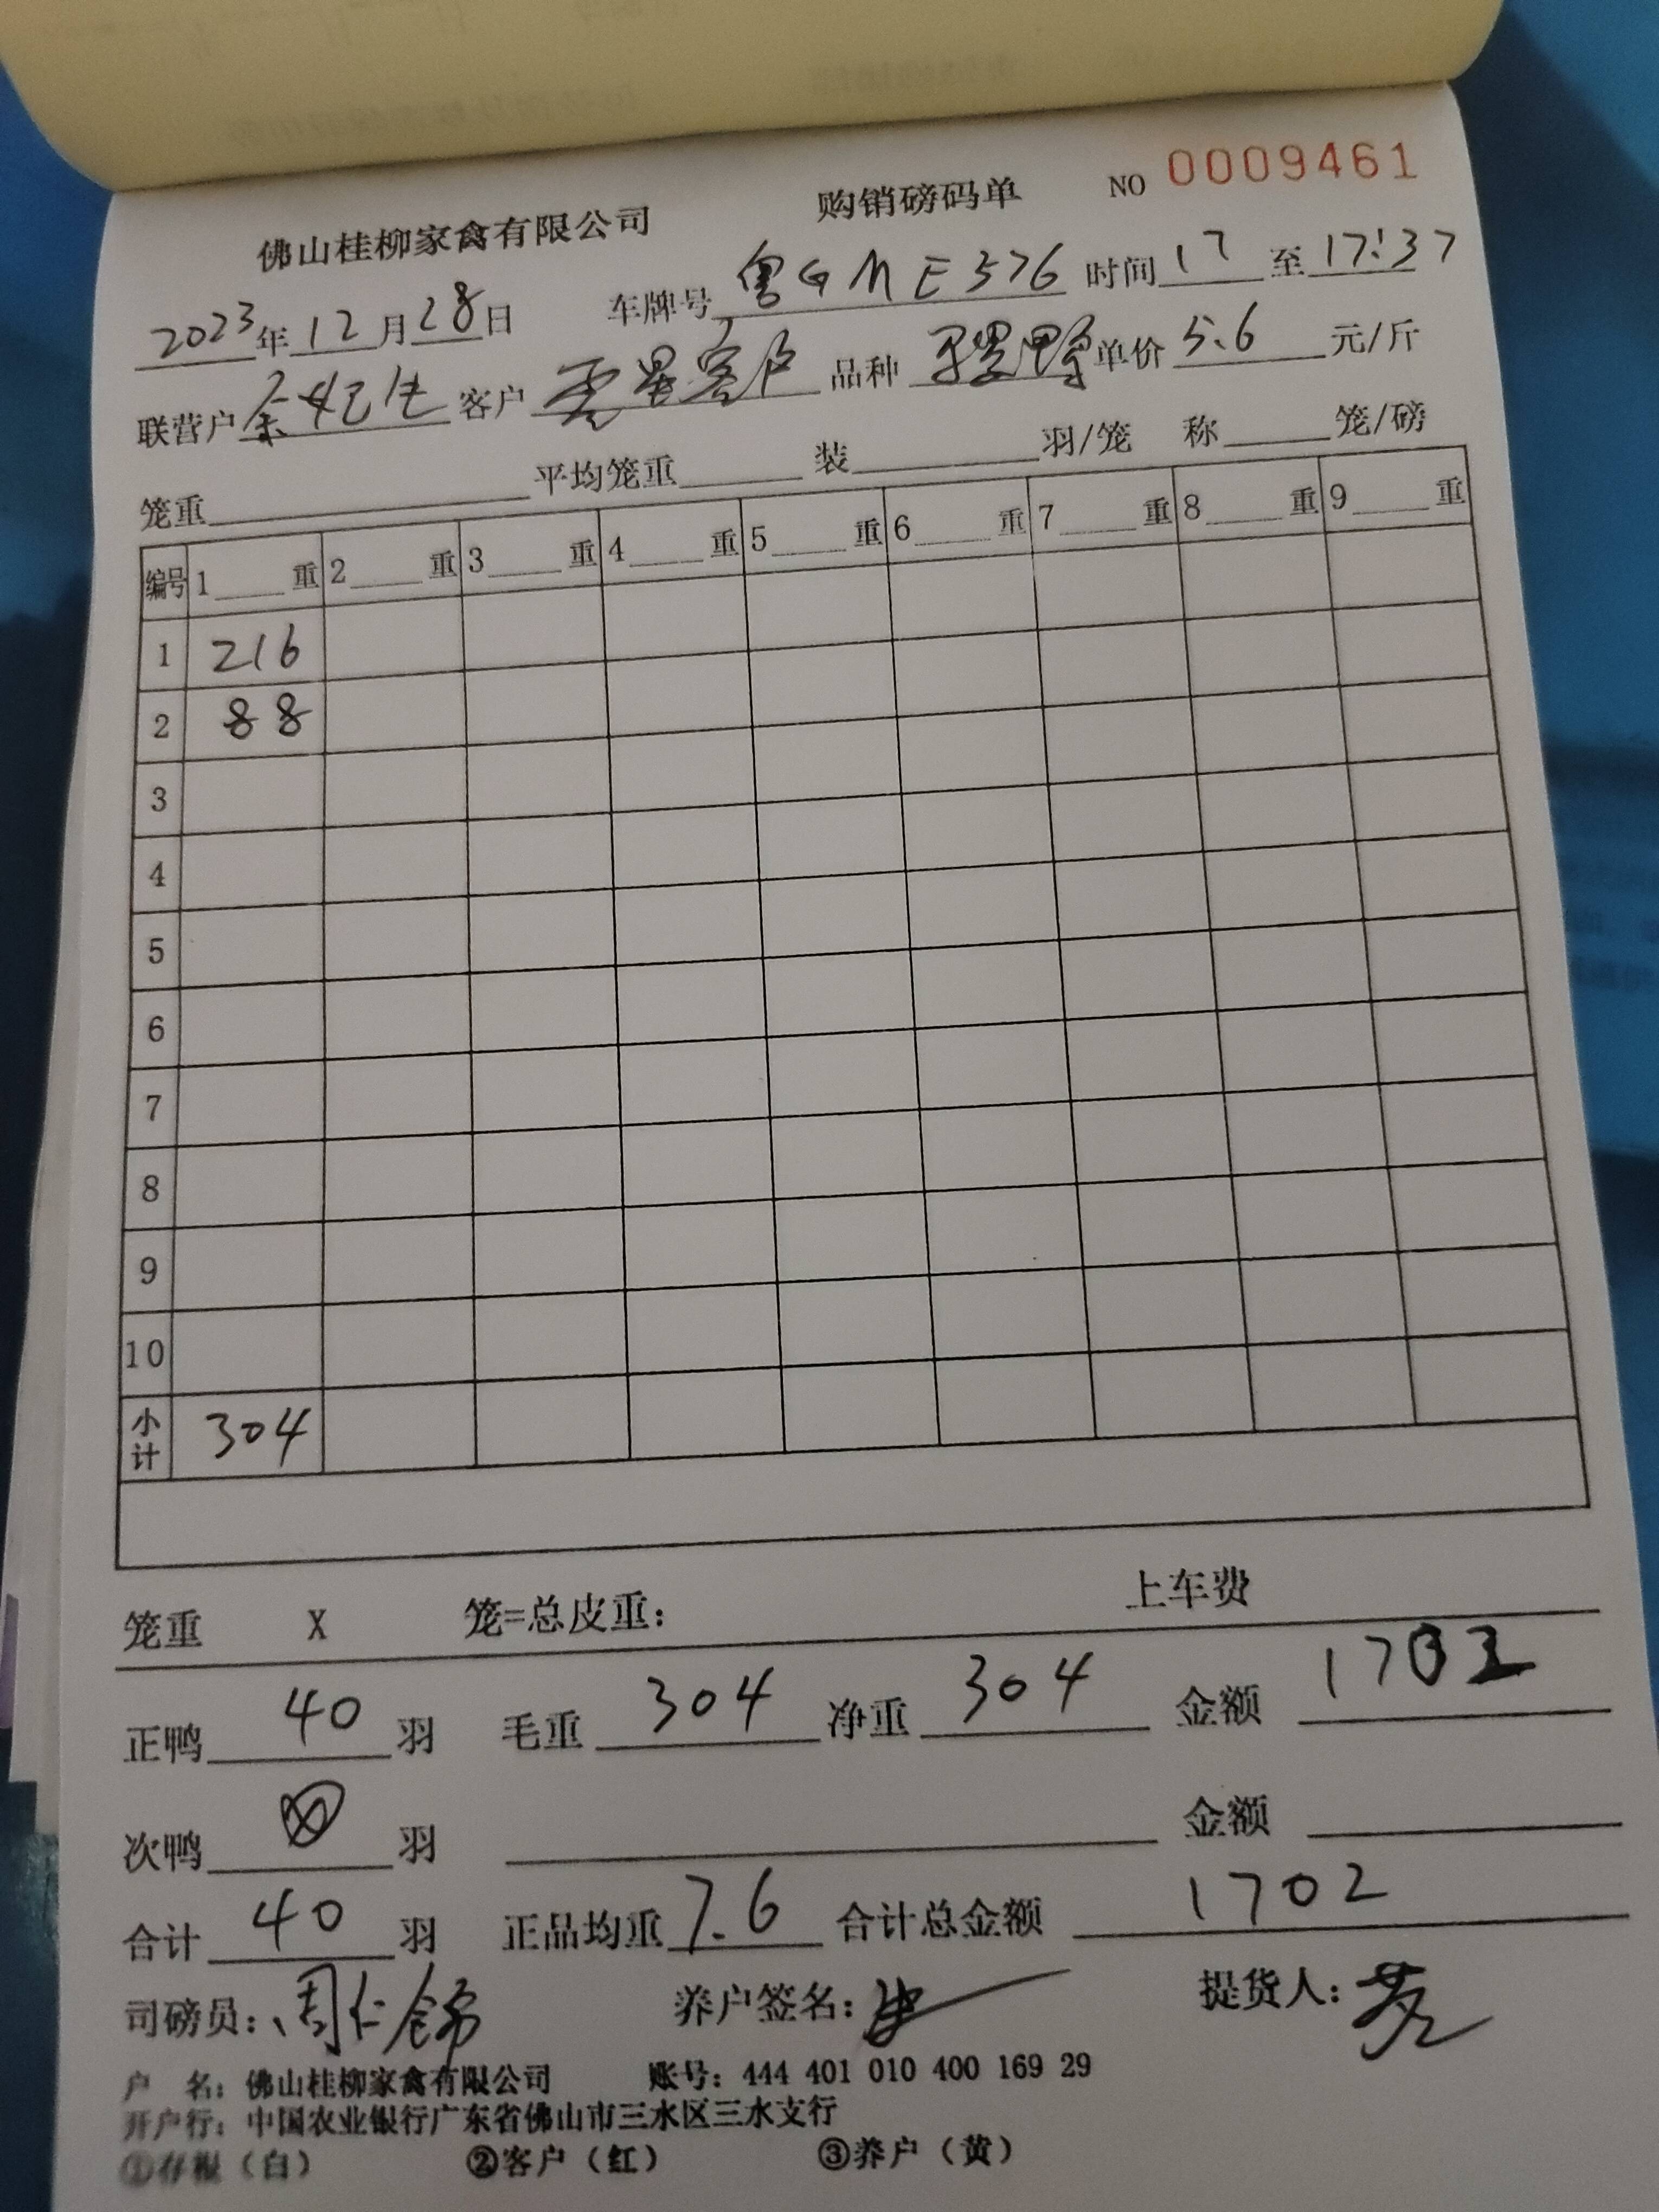 佛山桂柳家禽有限公司 购销磅码单 NO 0009461
2023年12月28日 车牌号 粤GME376 时间 17 至 17:37
联营户 余妃生 客户 零星客户 品种 单价 5.6 元/斤
笼重 平均笼重 装 羽/笼 称 笼/磅
编号 1 重 2 重 3 重 4 重 5 重 6 重 7 重 8 重 9 重
1 216
2 88
3
4
5
6
7
8
9
10
小计 304
笼重 X 笼=总皮重： 上车费
正鸭 40 羽 毛重 304 净重 304 金额 1702
次鸭 羽 金额
合计 40 羽 正品均重 7.6 合计总金额 1702
司磅员：周仁锦 养户签名： 提货人：
户 名：佛山桂柳家禽有限公司 账号：444 401 010 400 169 29
开户行：中国农业银行广东省佛山市三水区三水支行
①存根（白） ②客户（红） ③养户（黄）